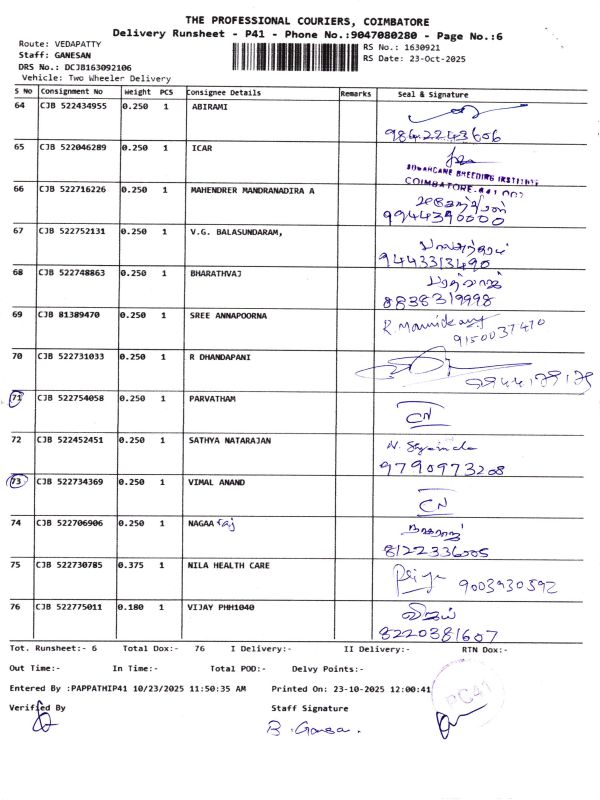 THE PROFESSIONAL COURIERS, COIMBATORE
Delivery Runsheet - P41 - Phone No.:9047080280 - Page No.:6
Route: VEDAPATTY
RS No.: 1630921
Staff: GANESAN
RS Date: 23-Oct-2025
DRS No.: DCJB163092106
Vehicle: Two Wheeler Delivery
S No Consignment No Weight PCS Consignee Details Remarks Seal & Signature
64 CJB 522434955 0.250 1 ABIRAMI
9842243606
65 CJB 522046289 0.250 1 ICAR
SUGARCANE BREEDING INSTITUTE
COIMBATORE-641 007
66 CJB 522716226 0.250 1 MAHENDRER MANDRANADIRA A
9944390000
67 CJB 522752131 0.250 1 V.G. BALASUNDARAM,
பாலசுந்தரம்
9443313490
68 CJB 522748863 0.250 1 BHARATHVAJ
பரத்வாஜ்
8838319998
69 CJB 81389470 0.250 1 SREE ANNAPOORNA
9150037410
70 CJB 522731033 0.250 1 R DHANDAPANI
71 CJB 522754058 0.250 1 PARVATHAM
CN
72 CJB 522452451 0.250 1 SATHYA NATARAJAN
9790973208
73 CJB 522734369 0.250 1 VIMAL ANAND
CN
74 CJB 522706906 0.250 1 NAGAA raj
நாகராஜ்
8122336005
75 CJB 522730785 0.375 1 NILA HEALTH CARE
Priya 9003930592
76 CJB 522775011 0.180 1 VIJAY PHH1040
விஜய்
8220381607
Tot. Runsheet:- 6 Total Dox:- 76 I Delivery:- II Delivery:- RTN Dox:-
Out Time:- In Time:- Total POD:- Delvy Points:-
Entered By :PAPPATHIP41 10/23/2025 11:50:35 AM Printed On: 23-10-2025 12:00:41
PC41
Verified By Staff Signature